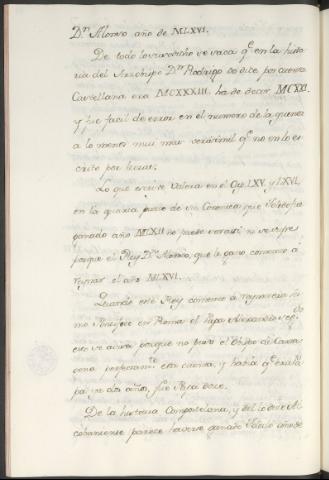 Dn. Alonso año de MLXVI.
De todo lo susodicho se saca qe. en la histo
ria del Arzobispo Dn. Rodrigo do dize por quenta
Castellana era MCXXXIII. ha de decir MCXXI.
y fue facil de errar en el numero de la quenta
a lo menos mui mas verisimil qe. no en lo es-
crito por letras.
Lo que escrive Valera en el Cap. LXV. y LXVI.
en la quarta parte de su Coronica que Toledo fue
ganado año MLXII no puede ser assi ni se sufre
porque el Rey Dn. Alonso, que le gano, comenzo á
reynar el año MLXVI.
Quando este Rey comenzo a reynar era Su-
mo Pontifice en Roma el Papa Alexandro segdo.
esto se
porque no el Obispo de Carta
gena cuenta, y habia qe. era Pa
pa ya dos años, fue Papa doce.
De la historia Compostelana, y del
parece haverse ganado Toledo año de